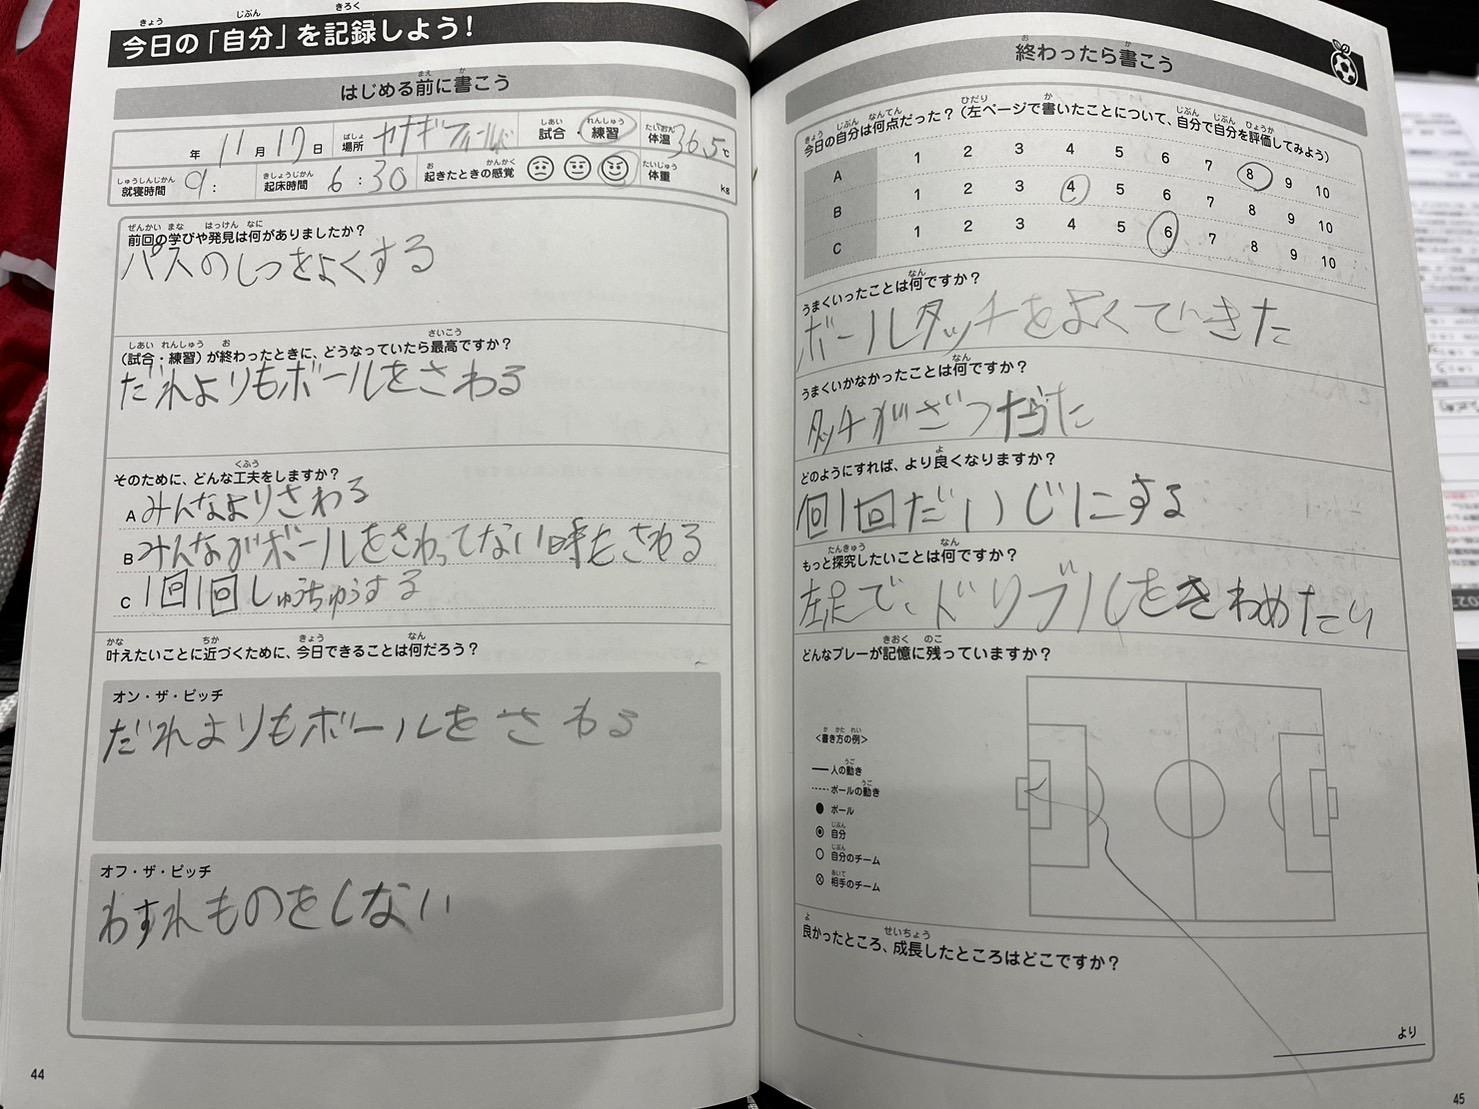 今日の「自分」を記録しよう!
はじめる前に書こう
年 11月17日 場所 ヤナギフィールド 試合・練習 体温 36.5℃
就寝時間 9: 起床時間 6:30 起きたときの感覚 体重 kg
前回の学びや発見は何がありましたか?
パスのしつをよくする
(試合・練習)が終わったときに、どうなっていたら最高ですか?
だれよりもボールをさわる
そのために、どんな工夫をしますか?
A みんなよりさわる
B みんながボールをさわってない時もさわる
C 1回1回しゅうちゅうする
叶えたいことに近づくために、今日できることは何だろう?
オン・ザ・ピッチ
だれよりもボールをさわる
オフ・ザ・ピッチ
わすれものをしない
44
終わったら書こう
今日の自分は何点だった?(左ページで書いたことについて、自分で自分を評価してみよう)
A 1 2 3 4 5 6 7 8 9 10
B 1 2 3 4 5 6 7 8 9 10
C 1 2 3 4 5 6 7 8 9 10
うまくいったことは何ですか?
ボールタッチをよくできた
うまくいかなかったことは何ですか?
タッチがざつだった
どのようにすれば、より良くなりますか?
1回1回だいじにする
もっと探究したいことは何ですか?
左足で、ドリブルをきわめたい
どんなプレーが記憶に残っていますか?
<書き方の例>
人の動き
ボールの動き
ボール
自分
自分のチーム
相手のチーム
良かったところ、成長したところはどこですか?
より
45